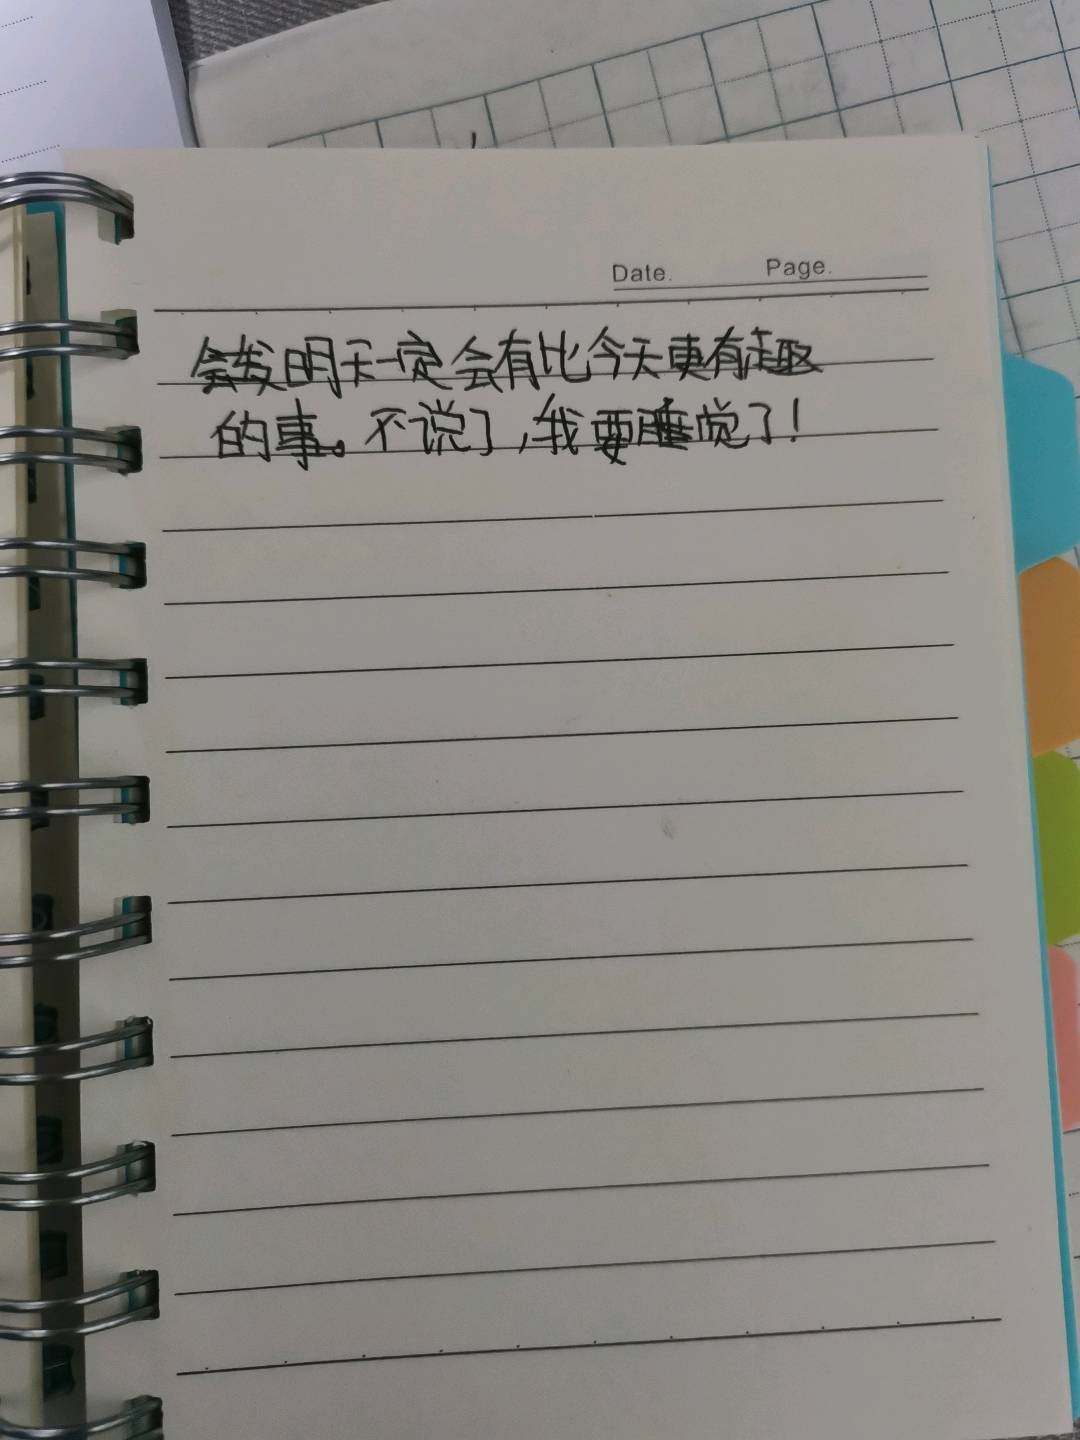 Date. Page.
会发明天一定会有比今天更有趣
的事。不说了,我要睡觉了!